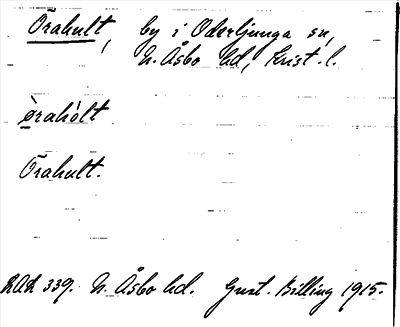 Örahult, by i Oderljunga sn,
N. Åsbo hd, Krist. l.
òrahòlt
Örahult.
RAÄ 339. N. Åsbo hd. Gust. Billing 1915.